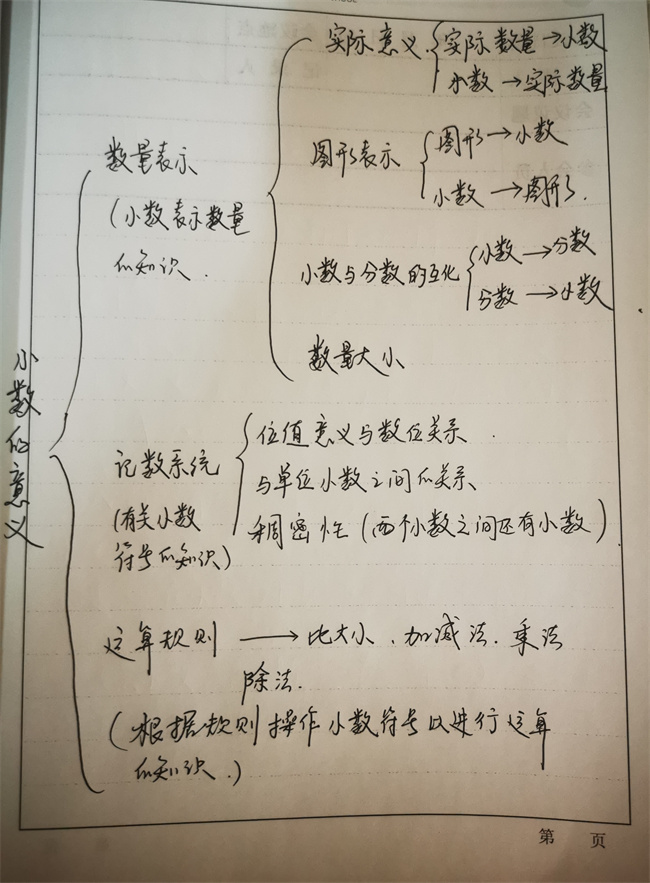 小数的意义
数量表示
(小数表示数量
的知识.
实际意义
实际数量→小数
小数→实际数量
图形表示
图形→小数
小数→图形.
小数与分数的互化
小数→分数
分数→小数
数量大小
记数系统
(有关小数
符号的知识)
位值意义与数位关系.
与单位小数之间的关系
稠密性(两个小数之间还有小数)
运算规则→比大小、加减法.乘法
除法.
(根据规则操作小数符号以进行运算
的知识.)
第 页